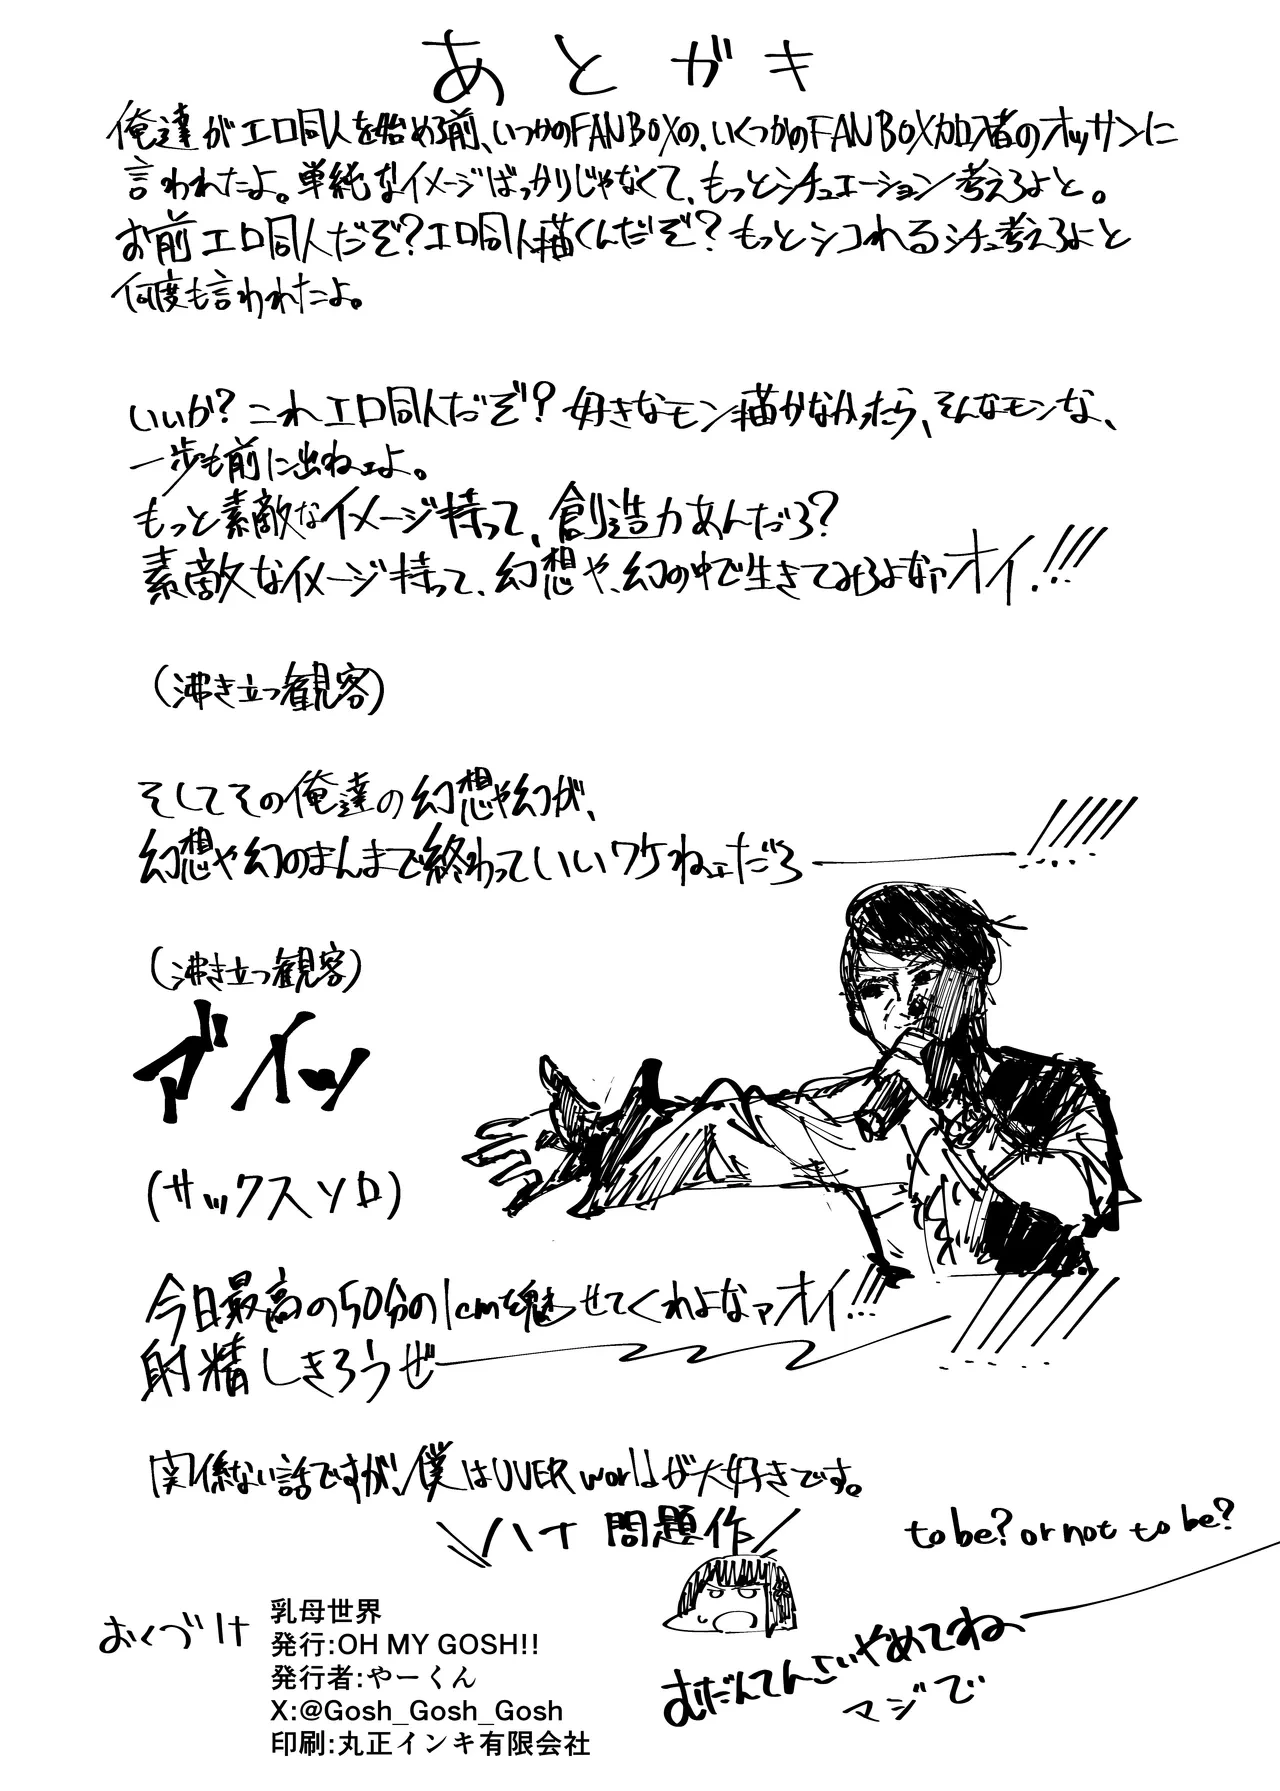 あとがき
俺達がエロ同人を始める前、いつかのFANBOXの、いくつかのFANBOX加入者のオッサンに
言われたよ。単純なイメージばっかりじゃなくて、もっとシチュエーション考えろよと。
お前エロ同人だぞ?エロ同人描くんだぞ?もっとシコれるシチュ考えろよと
何度も言われたよ。
いいか?これエロ同人だぞ?好きなモン描かなかったら、そんなモンな、
一歩も前に出ねェよ。
もっと素敵なイメージ持って、創造力あんだろ?
素敵なイメージ持って、幻想や、幻の中で生きてみろよなァオイ!!!
(沸き立つ観客)
そしてその俺達の幻想や幻が、
幻想や幻のまんまで終わっていいワケねェだろ――!!!!!
(沸き立つ観客)
マイッ
(サックスソロ)
今日最高の50分の1cmを魅せてくれよなァオイ!!!
射精しきろうぜ――!!!!!
関係ない話ですが、僕はUVERworldが大好きです。
\\ハナ問題作/
to be? or not to be?
おくづけ
乳母世界
発行:OH MY GOSH!!
発行者:やーくん
X:@Gosh_Gosh_Gosh
印刷:丸正インキ有限会社
むだんてんさいやめてね――
マジで